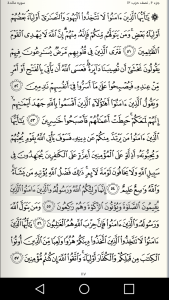 يَٰٓأَيُّهَا ٱلَّذِينَ ءَامَنُوا۟ لَا تَتَّخِذُوا۟ ٱلْيَهُودَ وَٱلنَّصَٰرَىٰٓ أَوْلِيَآءَ بَعْضُهُمْ
أَوْلِيَآءُ بَعْضٍ وَمَن يَتَوَلَّهُم مِّنكُمْ فَإِنَّهُۥ مِنْهُمْ إِنَّ ٱللَّهَ لَا يَهْدِى ٱلْقَوْمَ
ٱلظَّٰلِمِينَ ٥١ فَتَرَى ٱلَّذِينَ فِى قُلُوبِهِم مَّرَضٌ يُسَٰرِعُونَ فِيهِمْ
يَقُولُونَ نَخْشَىٰٓ أَن تُصِيبَنَا دَآئِرَةٌ فَعَسَى ٱللَّهُ أَن يَأْتِىَ بِٱلْفَتْحِ أَوْ أَمْرٍ
مِّنْ عِندِهِۦ فَيُصْبِحُوا۟ عَلَىٰ مَآ أَسَرُّوا۟ فِىٓ أَنفُسِهِمْ نَٰدِمِينَ ٥٢
وَيَقُولُ ٱلَّذِينَ ءَامَنُوٓا۟ أَهَٰٓؤُلَآءِ ٱلَّذِينَ أَقْسَمُوا۟ بِٱللَّهِ جَهْدَ أَيْمَٰنِهِمْ
إِنَّهُمْ لَمَعَكُمْ حَبِطَتْ أَعْمَٰلُهُمْ فَأَصْبَحُوا۟ خَٰسِرِينَ ٥٣
يَٰٓأَيُّهَا ٱلَّذِينَ ءَامَنُوا۟ مَن يَرْتَدَّ مِنكُمْ عَن دِينِهِۦ فَسَوْفَ يَأْتِى ٱللَّهُ بِقَوْمٍ يُحِبُّهُمْ
وَيُحِبُّونَهُۥٓ أَذِلَّةٍ عَلَى ٱلْمُؤْمِنِينَ أَعِزَّةٍ عَلَى ٱلْكَٰفِرِينَ يُجَٰهِدُونَ فِى
سَبِيلِ ٱللَّهِ وَلَا يَخَافُونَ لَوْمَةَ لَآئِمٍ ذَٰلِكَ فَضْلُ ٱللَّهِ يُؤْتِيهِ مَن يَشَآءُ
وَٱللَّهُ وَٰسِعٌ عَلِيمٌ ٥٤ إِنَّمَا وَلِيُّكُمُ ٱللَّهُ وَرَسُولُهُۥ وَٱلَّذِينَ ءَامَنُوا۟ ٱلَّذِينَ
يُقِيمُونَ ٱلصَّلَوٰةَ وَيُؤْتُونَ ٱلزَّكَوٰةَ وَهُمْ رَٰكِعُونَ ٥٥ وَمَن يَتَوَلَّ ٱللَّهَ
وَرَسُولَهُۥ وَٱلَّذِينَ ءَامَنُوا۟ فَإِنَّ حِزْبَ ٱللَّهِ هُمُ ٱلْغَٰلِبُونَ ٥٦ يَٰٓأَيُّهَا
ٱلَّذِينَ ءَامَنُوا۟ لَا تَتَّخِذُوا۟ ٱلَّذِينَ ٱتَّخَذُوا۟ دِينَكُمْ هُزُوًا وَلَعِبًا مِّنَ ٱلَّذِينَ أُوتُوا۟
ٱلْكِتَٰبَ مِن قَبْلِكُمْ وَٱلْكُفَّارَ أَوْلِيَآءَ وَٱتَّقُوا۟ ٱللَّهَ إِن كُنتُم مُّؤْمِنِينَ ٥٧